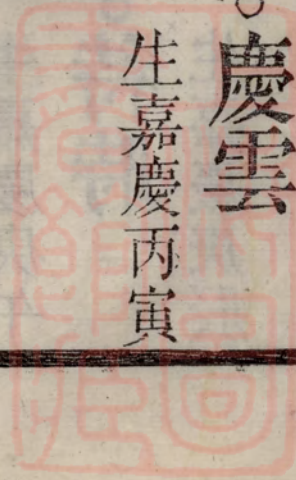 慶雲
生嘉慶丙寅